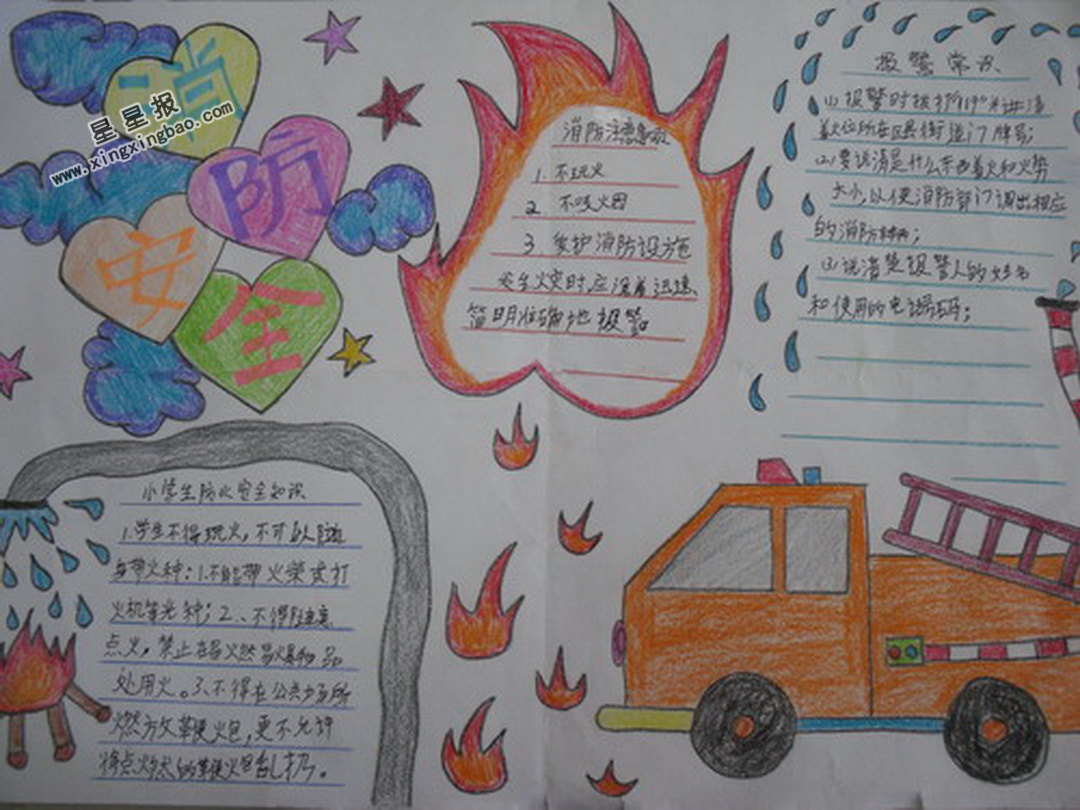 消防
安全
星星报
www.xingxingbao.com
消防注意事项
1. 不玩火
2. 不吸火因
3. 爱护消防设施
发生火灾时,应沉着迅速
简明准确地报警
报警常识
(1)报警时拨打"119"并讲清
着火位所在区县街道门牌号;
(2)要说清是什么东西着火和火势
大小,以便消防部门调出相应
的消防车辆;
(3)说清楚报警人的姓名
和使用的电话号码;
小学生防火安全知识
1.学生不得玩火,不可以随
身带火种:1.不能带火柴或打
火机等火种;2、不得随意
点火,禁止在易火然易爆物品
处用火。3、不得在公共场所
燃方文革便火包,更不允许
将点火然的革便火包乱扔。